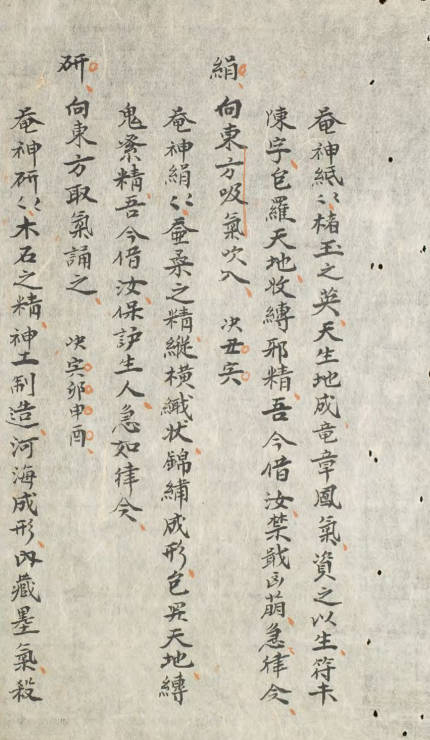 菴神紙〻楮玉之英天生地成竜章鳳氣資之以生符卡
陳字包羅天地收縛邪精吾今借汝禁戢凶萠急律令
絹 向東方吸氣吹入 决丑寅
菴神絹〻蚕桑之精縱橫織状錦繡成形包罗天地縛
鬼縈精吾今借汝保護生人急如律令
研 向東方取氣誦之 决寅卯申酉
菴神研〻木石之精神工制造河海成形内藏墨氣殺